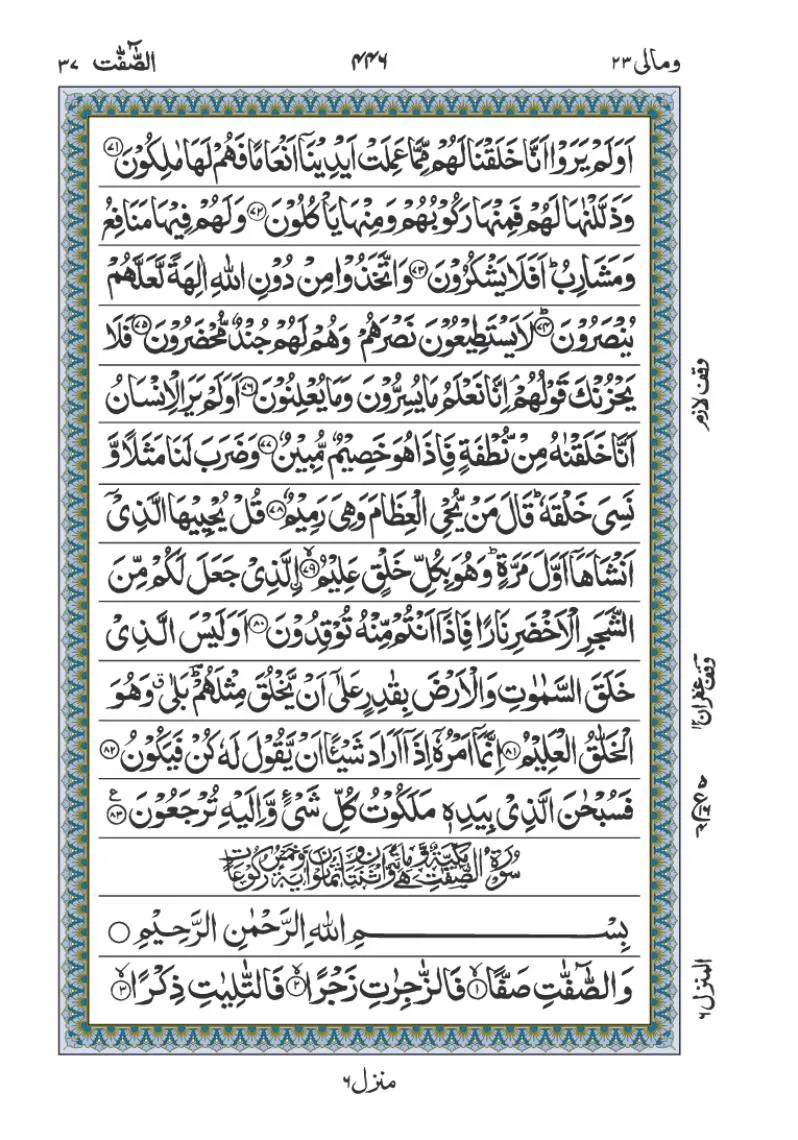 ومالی ٢٣
٤٤٦
الصّٰٓفّٰت ٣٧
اَوَلَمْ يَرَوْا اَنَّا خَلَقْنَا لَهُمْ مِّمَّا عَمِلَتْ اَيْدِيْنَاۤ اَنْعَامًا فَهُمْ لَهَا مٰلِكُوْنَ ٧١
وَذَلَّلْنٰهَا لَهُمْ فَمِنْهَا رَكُوْبُهُمْ وَمِنْهَا يَاْكُلُوْنَ ٧٢ وَلَهُمْ فِيْهَا مَنَافِعُ
وَمَشَارِبُ ؕ اَفَلَا يَشْكُرُوْنَ ٧٣ وَاتَّخَذُوْا مِنْ دُوْنِ اللّٰهِ اٰلِهَةً لَّعَلَّهُمْ
يُنْصَرُوْنَ ؕ ٧٤ لَا يَسْتَطِيْعُوْنَ نَصْرَهُمْ ۙ وَهُمْ لَهُمْ جُنْدٌ مُّحْضَرُوْنَ ٧٥ فَلَا
يَحْزُنْكَ قَوْلُهُمْ ۘ اِنَّا نَعْلَمُ مَا يُسِرُّوْنَ وَمَا يُعْلِنُوْنَ ٧٦ اَوَلَمْ يَرَ الْاِنْسَانُ
اَنَّا خَلَقْنٰهُ مِنْ نُّطْفَةٍ فَاِذَا هُوَ خَصِيْمٌ مُّبِيْنٌ ٧٧ وَضَرَبَ لَنَا مَثَلًا وَّ
نَسِیَ خَلْقَهٗ ؕ قَالَ مَنْ يُّحْیِ الْعِظَامَ وَهِیَ رَمِيْمٌ ٧٨ قُلْ يُحْيِيْهَا الَّذِیْۤ
اَنْشَاَهَاۤ اَوَّلَ مَرَّةٍ ؕ وَهُوَ بِكُلِّ خَلْقٍ عَلِيْمُ ۙ ٧٩ اِۨلَّذِیْ جَعَلَ لَكُمْ مِّنَ
الشَّجَرِ الْاَخْضَرِ نَارًا فَاِذَاۤ اَنْتُمْ مِّنْهُ تُوْقِدُوْنَ ٨٠ اَوَلَيْسَ الَّذِیْ
خَلَقَ السَّمٰوٰتِ وَالْاَرْضَ بِقٰدِرٍ عَلٰۤی اَنْ يَّخْلُقَ مِثْلَهُمْ ؕ بَلٰی ۗ وَهُوَ
الْخَلّٰقُ الْعَلِيْمُ ٨١ اِنَّمَاۤ اَمْرُهٗۤ اِذَاۤ اَرَادَ شَيْـًٔا اَنْ يَّقُوْلَ لَهٗ كُنْ فَيَكُوْنُ ٨٢
فَسُبْحٰنَ الَّذِیْ بِيَدِهٖ مَلَكُوْتُ كُلِّ شَیْءٍ وَّاِلَيْهِ تُرْجَعُوْنَ ٨٣ ع
سُوْرَةُ الصّٰٓفّٰتِ مَكِّيَّةٌ وَّهِیَ مِائَةٌ وَّاثْنَتَانِ وَثَمَانُوْنَ اٰيَةً وَّخَمْسُ رُكُوْعَاتٍ
بِسْمِ اللّٰهِ الرَّحْمٰنِ الرَّحِيْمِ
وَالصّٰٓفّٰتِ صَفًّا ۙ ١ فَالزّٰجِرٰتِ زَجْرًا ۙ ٢ فَالتّٰلِيٰتِ ذِكْرًا ۙ ٣
وقف لازم
وقف غفران
المنزل ٦
منزل ٦